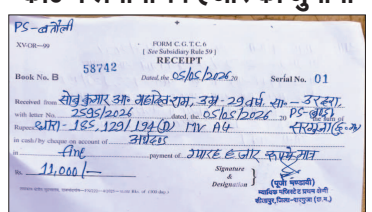 PS-बतौली
XV-OR-99
FORM C.G.T.C. 6
( See Subsidiary Rule 59 )
RECEIPT
58742
Book No. B
Dated, the 05/05/2026 20
Serial No. 01
Received from सोनू कुमार आ० महादेव राम, उम्र - 29 वर्ष, सा० –
with letter No. 2595/2026 dated, the 05/05/2026 20 PS-बतौली
Rupees धारा - 185, 129/194(D) MV Act सरगुजा (छ.ग.)
in cash/by cheque on account of अर्थदण्ड
in fine payment of ग्यारह हजार रूपये मात्र
Rs. 11,000/—
Signature
&
Designation
न्यायिक मजिस्ट्रेट प्रथम श्रेणी
सीतापुर, जिला-सरगुजा (छ.ग.)